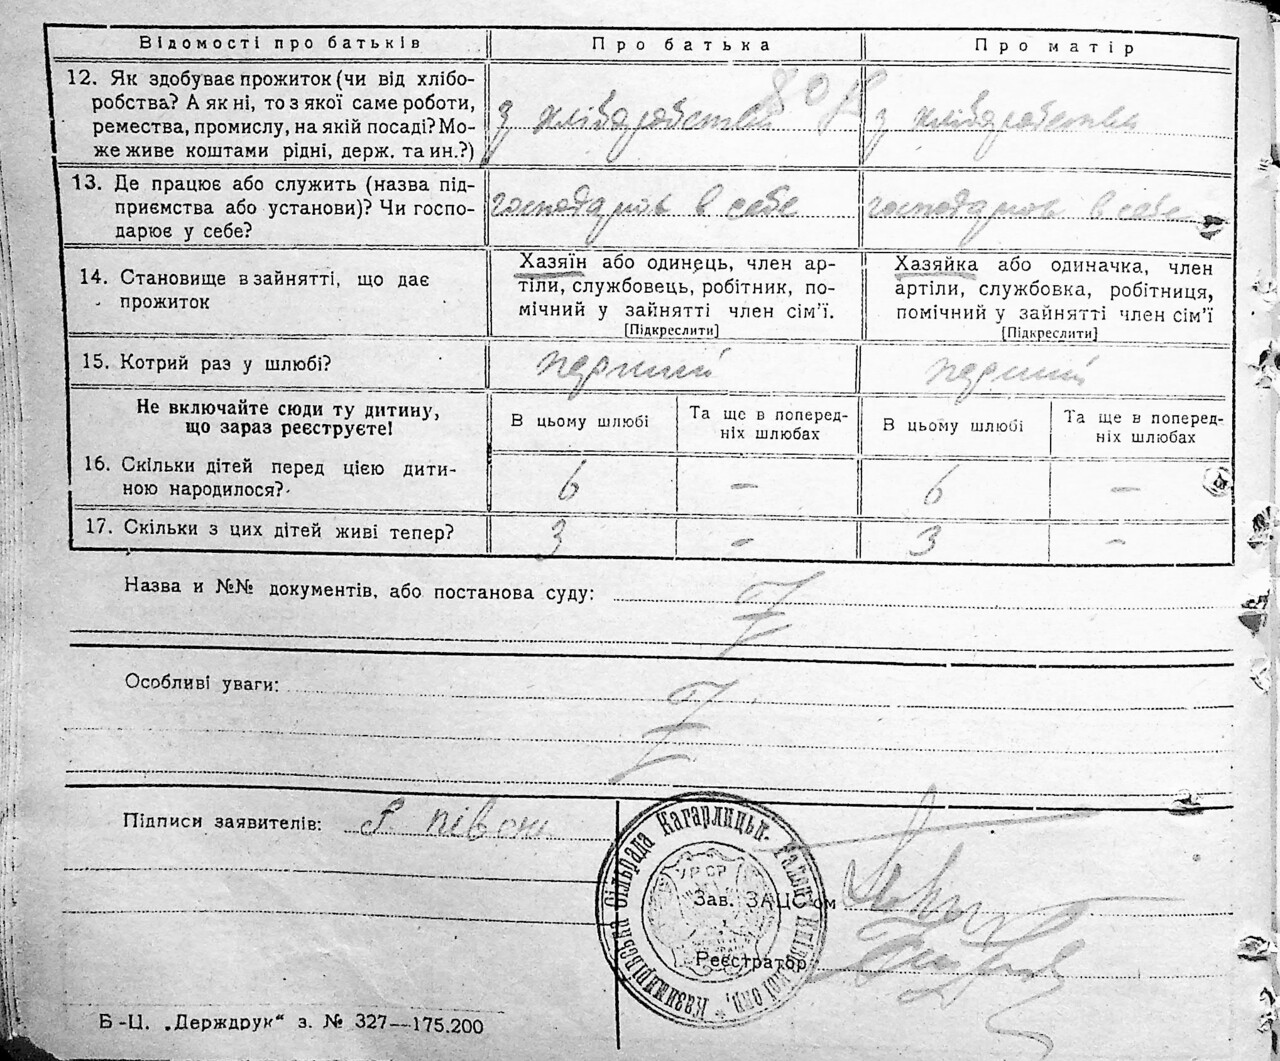 Відомості про батьків
Про батька
Про матір
12. Як здобуває прожиток (чи від хлібо-
робства? А як ні, то з якої саме роботи,
ремества, промислу, на якій посаді? Мо-
же живе коштами рідні, держ. та ин.?)
з хліборобства
з хліборобства
13. Де працює або служить (назва під-
приємства або установи)? Чи госпо-
дарює у себе?
господарює в себе
господарює в себе
14. Становище в зайнятті, що дає
прожиток
Хазяїн або одинець, член ар-
тіли, службовець, робітник, по-
мічний у зайнятті член сім'ї.
[Підкреслити]
Хазяйка або одиначка, член
артіли, службовка, робітниця,
помічний у зайнятті член сім'ї
[Підкреслити]
15. Котрий раз у шлюбі?
перший
перший
Не включайте сюди ту дитину,
що зараз реєструєте!
В цьому шлюбі
Та ще в поперед-
ніх шлюбах
В цьому шлюбі
Та ще в поперед-
ніх шлюбах
16. Скільки дітей перед цією дити-
ною народилося?
6
–
6
–
17. Скільки з цих дітей живі тепер?
3
–
3
–
Назва и №№ документів, або постанова суду:
Особливі уваги:
Підписи заявителів:
Казимирівська Сільрада Кагарлицьк. Району Київської окр.
УРСР
Зав. ЗАЦС'ом
Реєстратор
Б-Ц. „Держдрук“ з. № 327—175.200